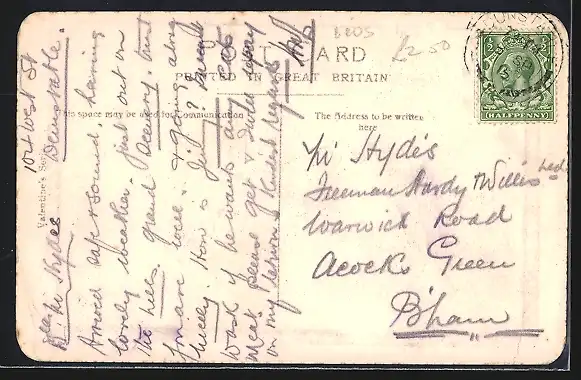 B205
£2.50
POST CARD
PRINTED IN GREAT BRITAIN
This space may be used for communication
The Address to be written
here
Valentine's Series
DUNSTABLE
HALFPENNY
Mr Hydes
Freeman Hardy & Willis Ltd
Warwick Road
Acocks Green
B'ham
104 West St
Dunstable.
Dear Mr Hydes
Arrived safe & sound, having
lovely weather. Just out on
the hills. grand scenery. trust
you are well & going along
nicely. How is
Ward if he wants any
meat please get & I will repay
on my return. Kindest regards